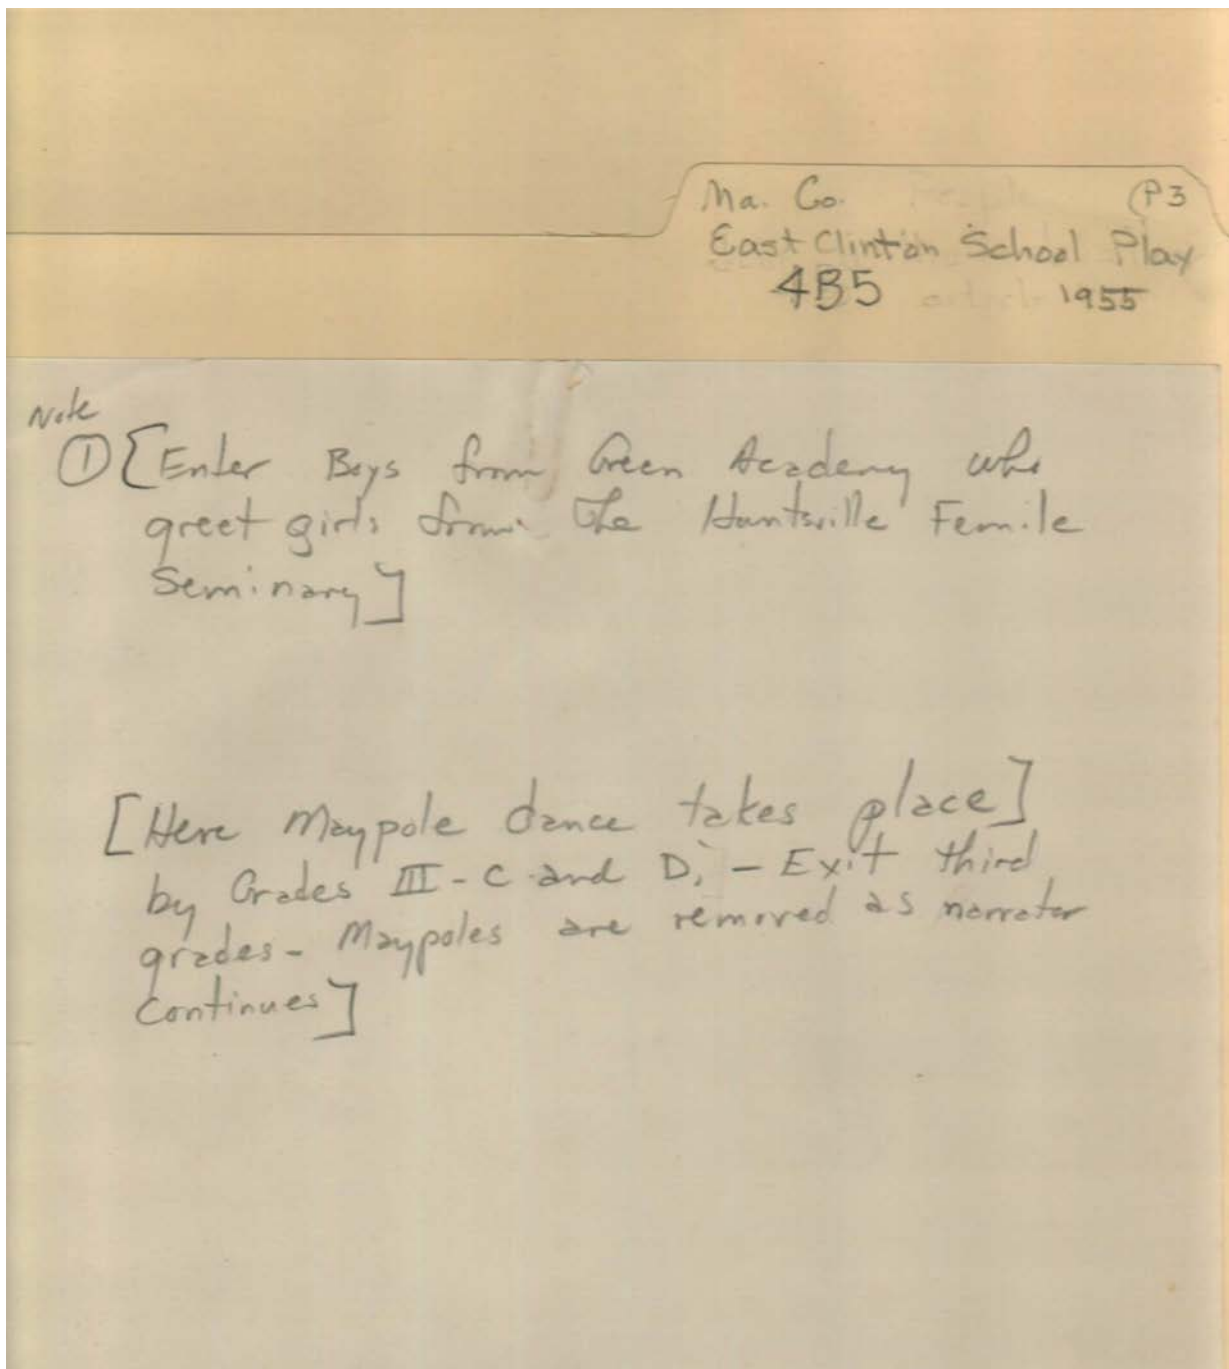 Ma. Co. (P3
East Clinton School Play
4B5 1955
Note
① [Enter Boys from Green Academy who
greet girls from the Huntsville Female
Seminary]
[Here Maypole dance takes place]
by Grades III - C and D, - Exit third
grades - Maypoles are removed as narrator
continues]